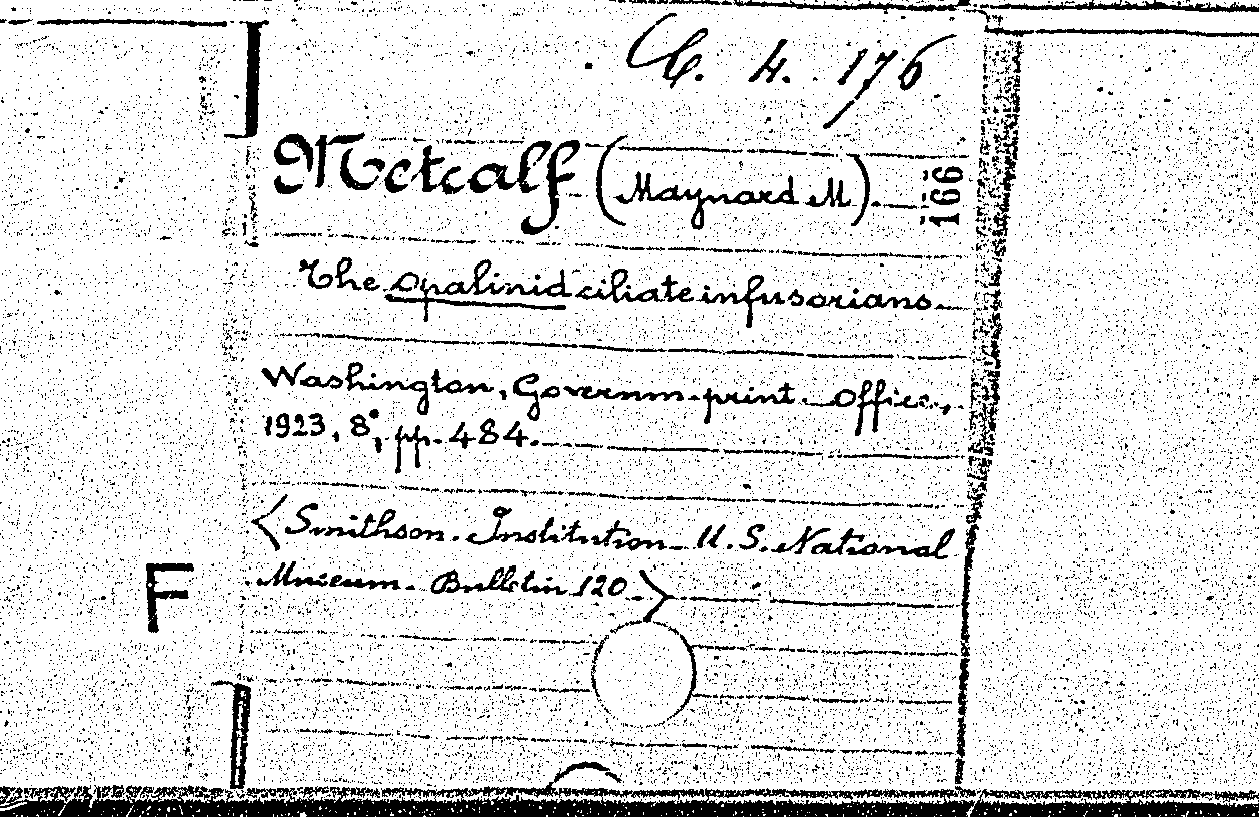 C. 4. 176
Metcalf (Maynard M).
166
The opalinid ciliate infusorians.
Washington, Governm. print. Office,
1923, 8°, pp. 484.
<Smithson. Institution U. S. National
Museum. Bulletin 120.>
F